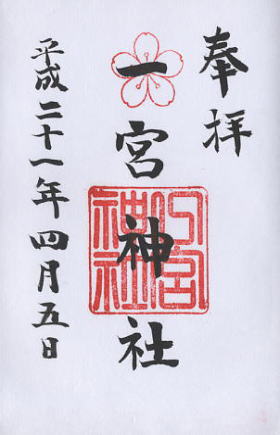 奉拝
一宮神社
一宮神社
平成二十一年四月五日